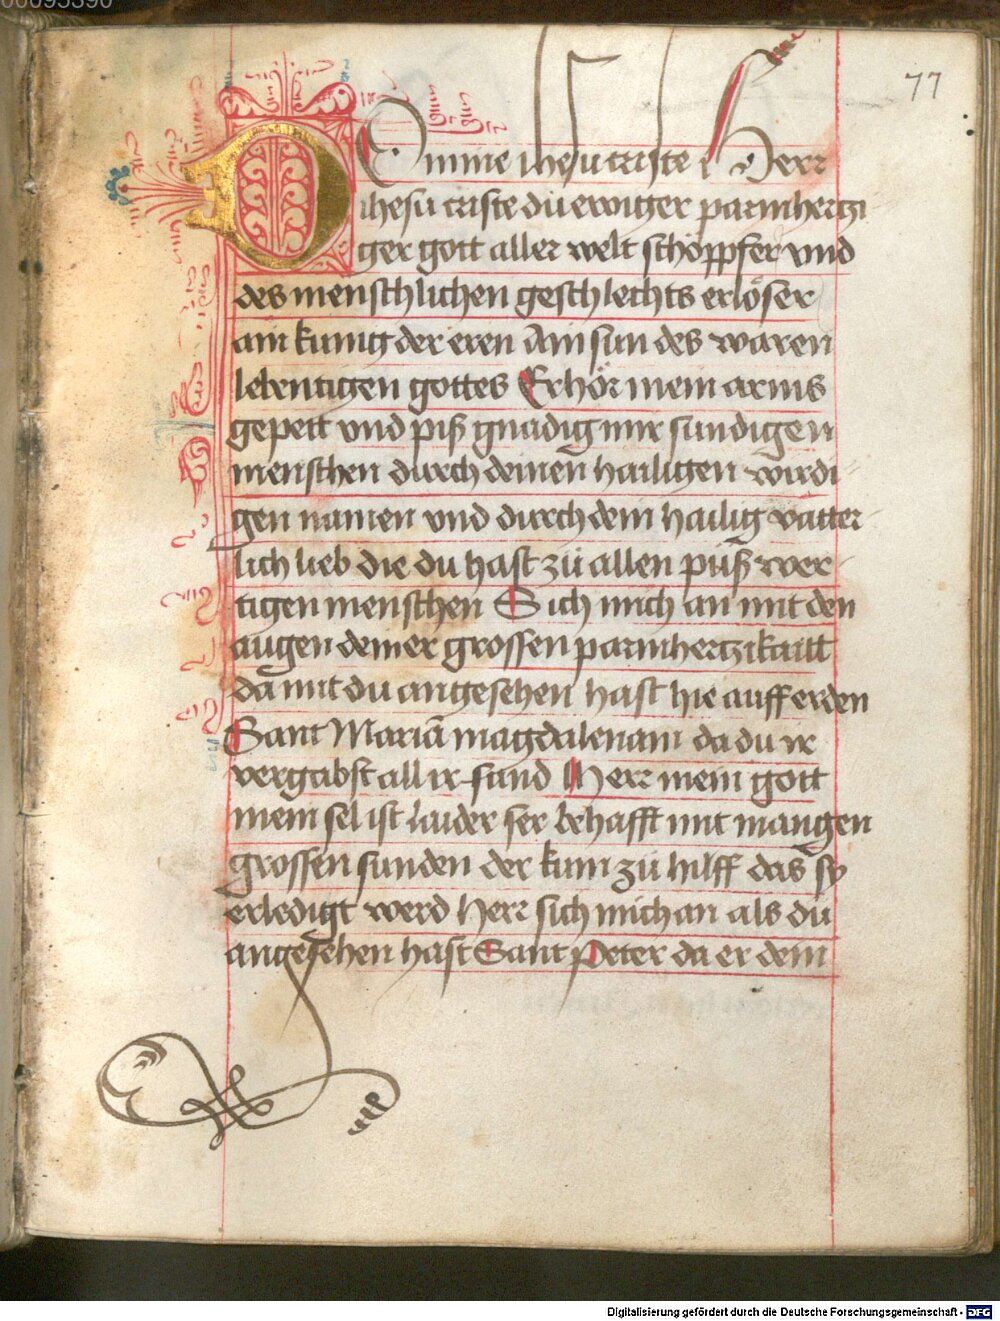 00095390
77
DOmine ihesu criste i Herr
ihesu criste du ewiger parmhertzi
ger gott aller welt schöppfer vnd
des menschlichen geschlechts erlöser
ain kunig der eren Ain sun des waren
lebentigen gottes Erhör mein arms
gepett vnd piß gnadig mir sundigen
menschen durch deinen hailigen wirdi
gen namen vnd durch dein hailig vatter
lich lieb die du hast zü allen puß wer
tigen menschen Sich mich an mit den
augen deiner grossen parmhertzikaitt
da mit du angesehen hast hie auff erden
Sant Mariā magdalenam da du ir
vergabst all ir sund Herr mein gott
mein sel ist laider ser behafft mit mangen
grossen sunden der kum zü hilff das sy
erledigt werd Herr sich mich an als du
angesehen hast Sant Peter da er dein
Digitalisierung gefördert durch die Deutsche Forschungsgemeinschaft - DFG